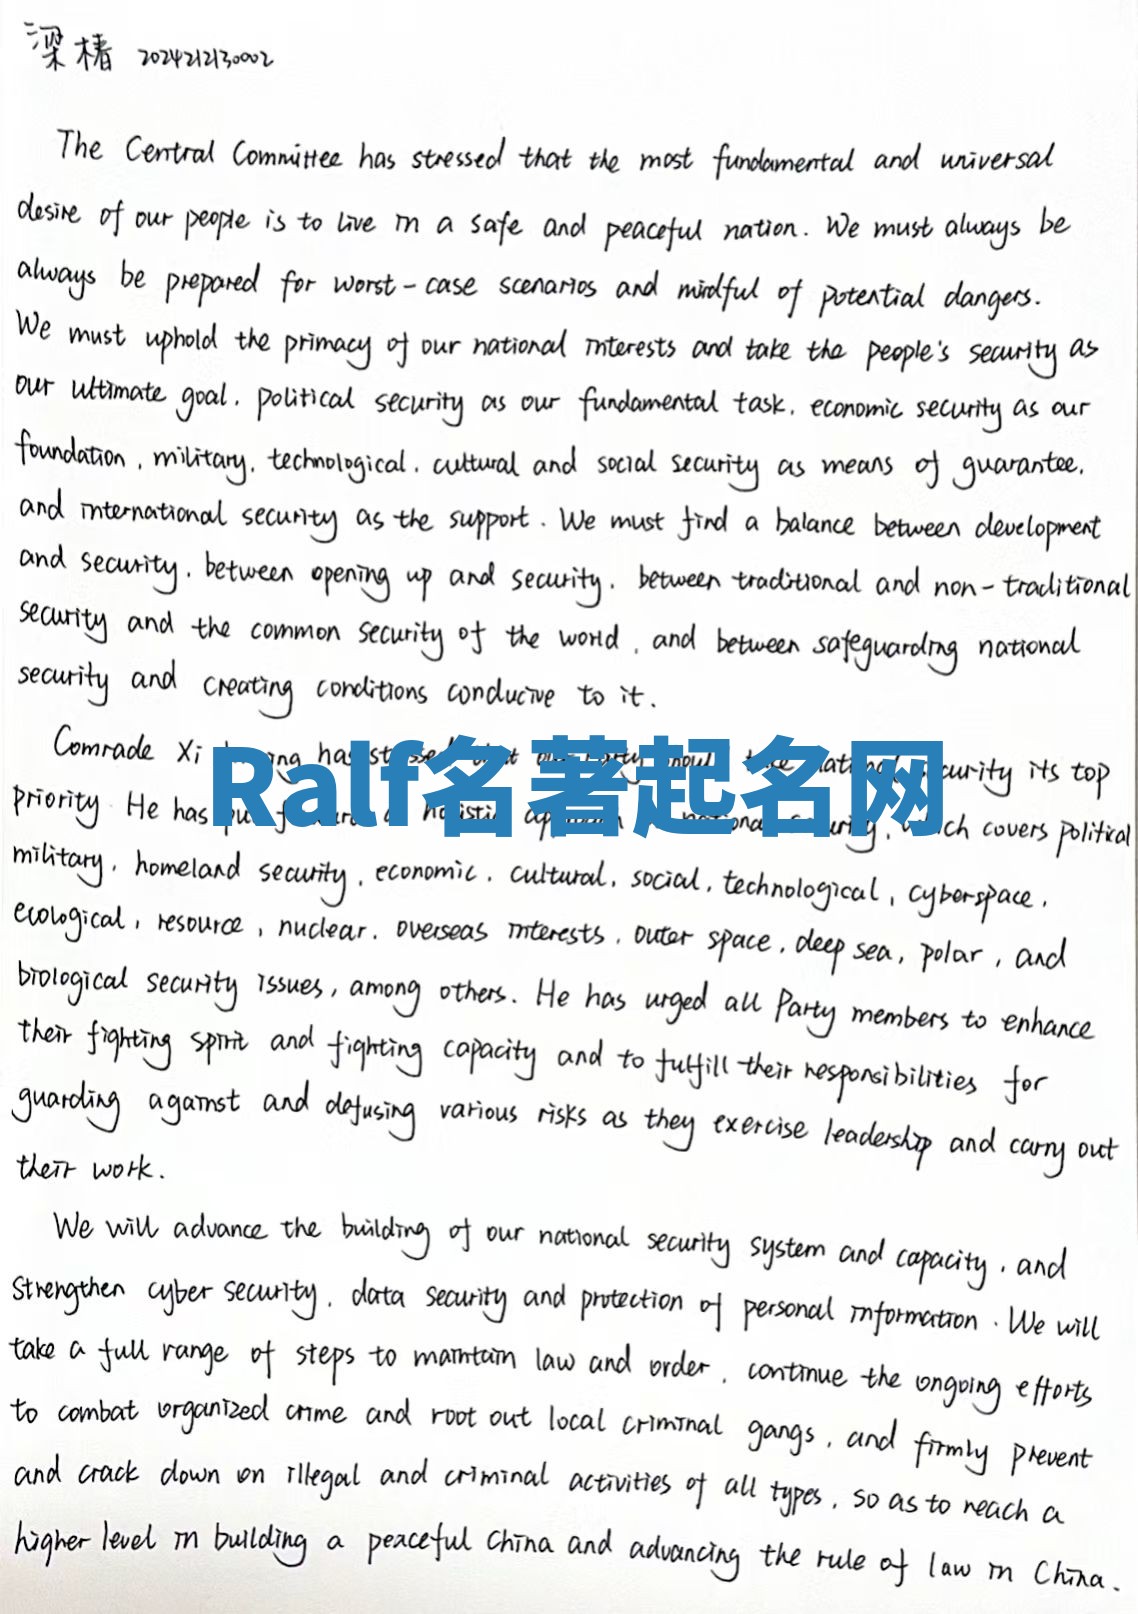 梁椿 2024212130002
The Central Committee has stressed that the most fundamental and universal
desire of our people is to live in a safe and peaceful nation. We must always be
always be prepared for worst-case scenarios and mindful of potential dangers.
We must uphold the primacy of our national interests and take the people's security as
our ultimate goal, political security as our fundamental task, economic security as our
foundation, military, technological, cultural and social security as means of guarantee,
and international security as the support. We must find a balance between development
and security, between opening up and security, between traditional and non-traditional
security and the common security of the world, and between safeguarding national
security and creating conditions conducive to it.
Comrade Xi has its top
Ralf名著起名网
priority. He has which covers political
military, homeland security, economic, cultural, social, technological, cyberspace,
ecological, resource, nuclear, overseas interests, outer space, deep sea, polar, and
biological security issues, among others. He has urged all Party members to enhance
their fighting spirit and fighting capacity and to fulfill their responsibilities for
guarding against and defusing various risks as they exercise leadership and carry out
their work.
We will advance the building of our national security system and capacity, and
strengthen cyber security, data security and protection of personal information. We will
take a full range of steps to maintain law and order, continue the ongoing efforts
to combat organized crime and root out local criminal gangs, and firmly prevent
and crack down on illegal and criminal activities of all types, so as to reach a
higher level in building a peaceful China and advancing the rule of law in China.